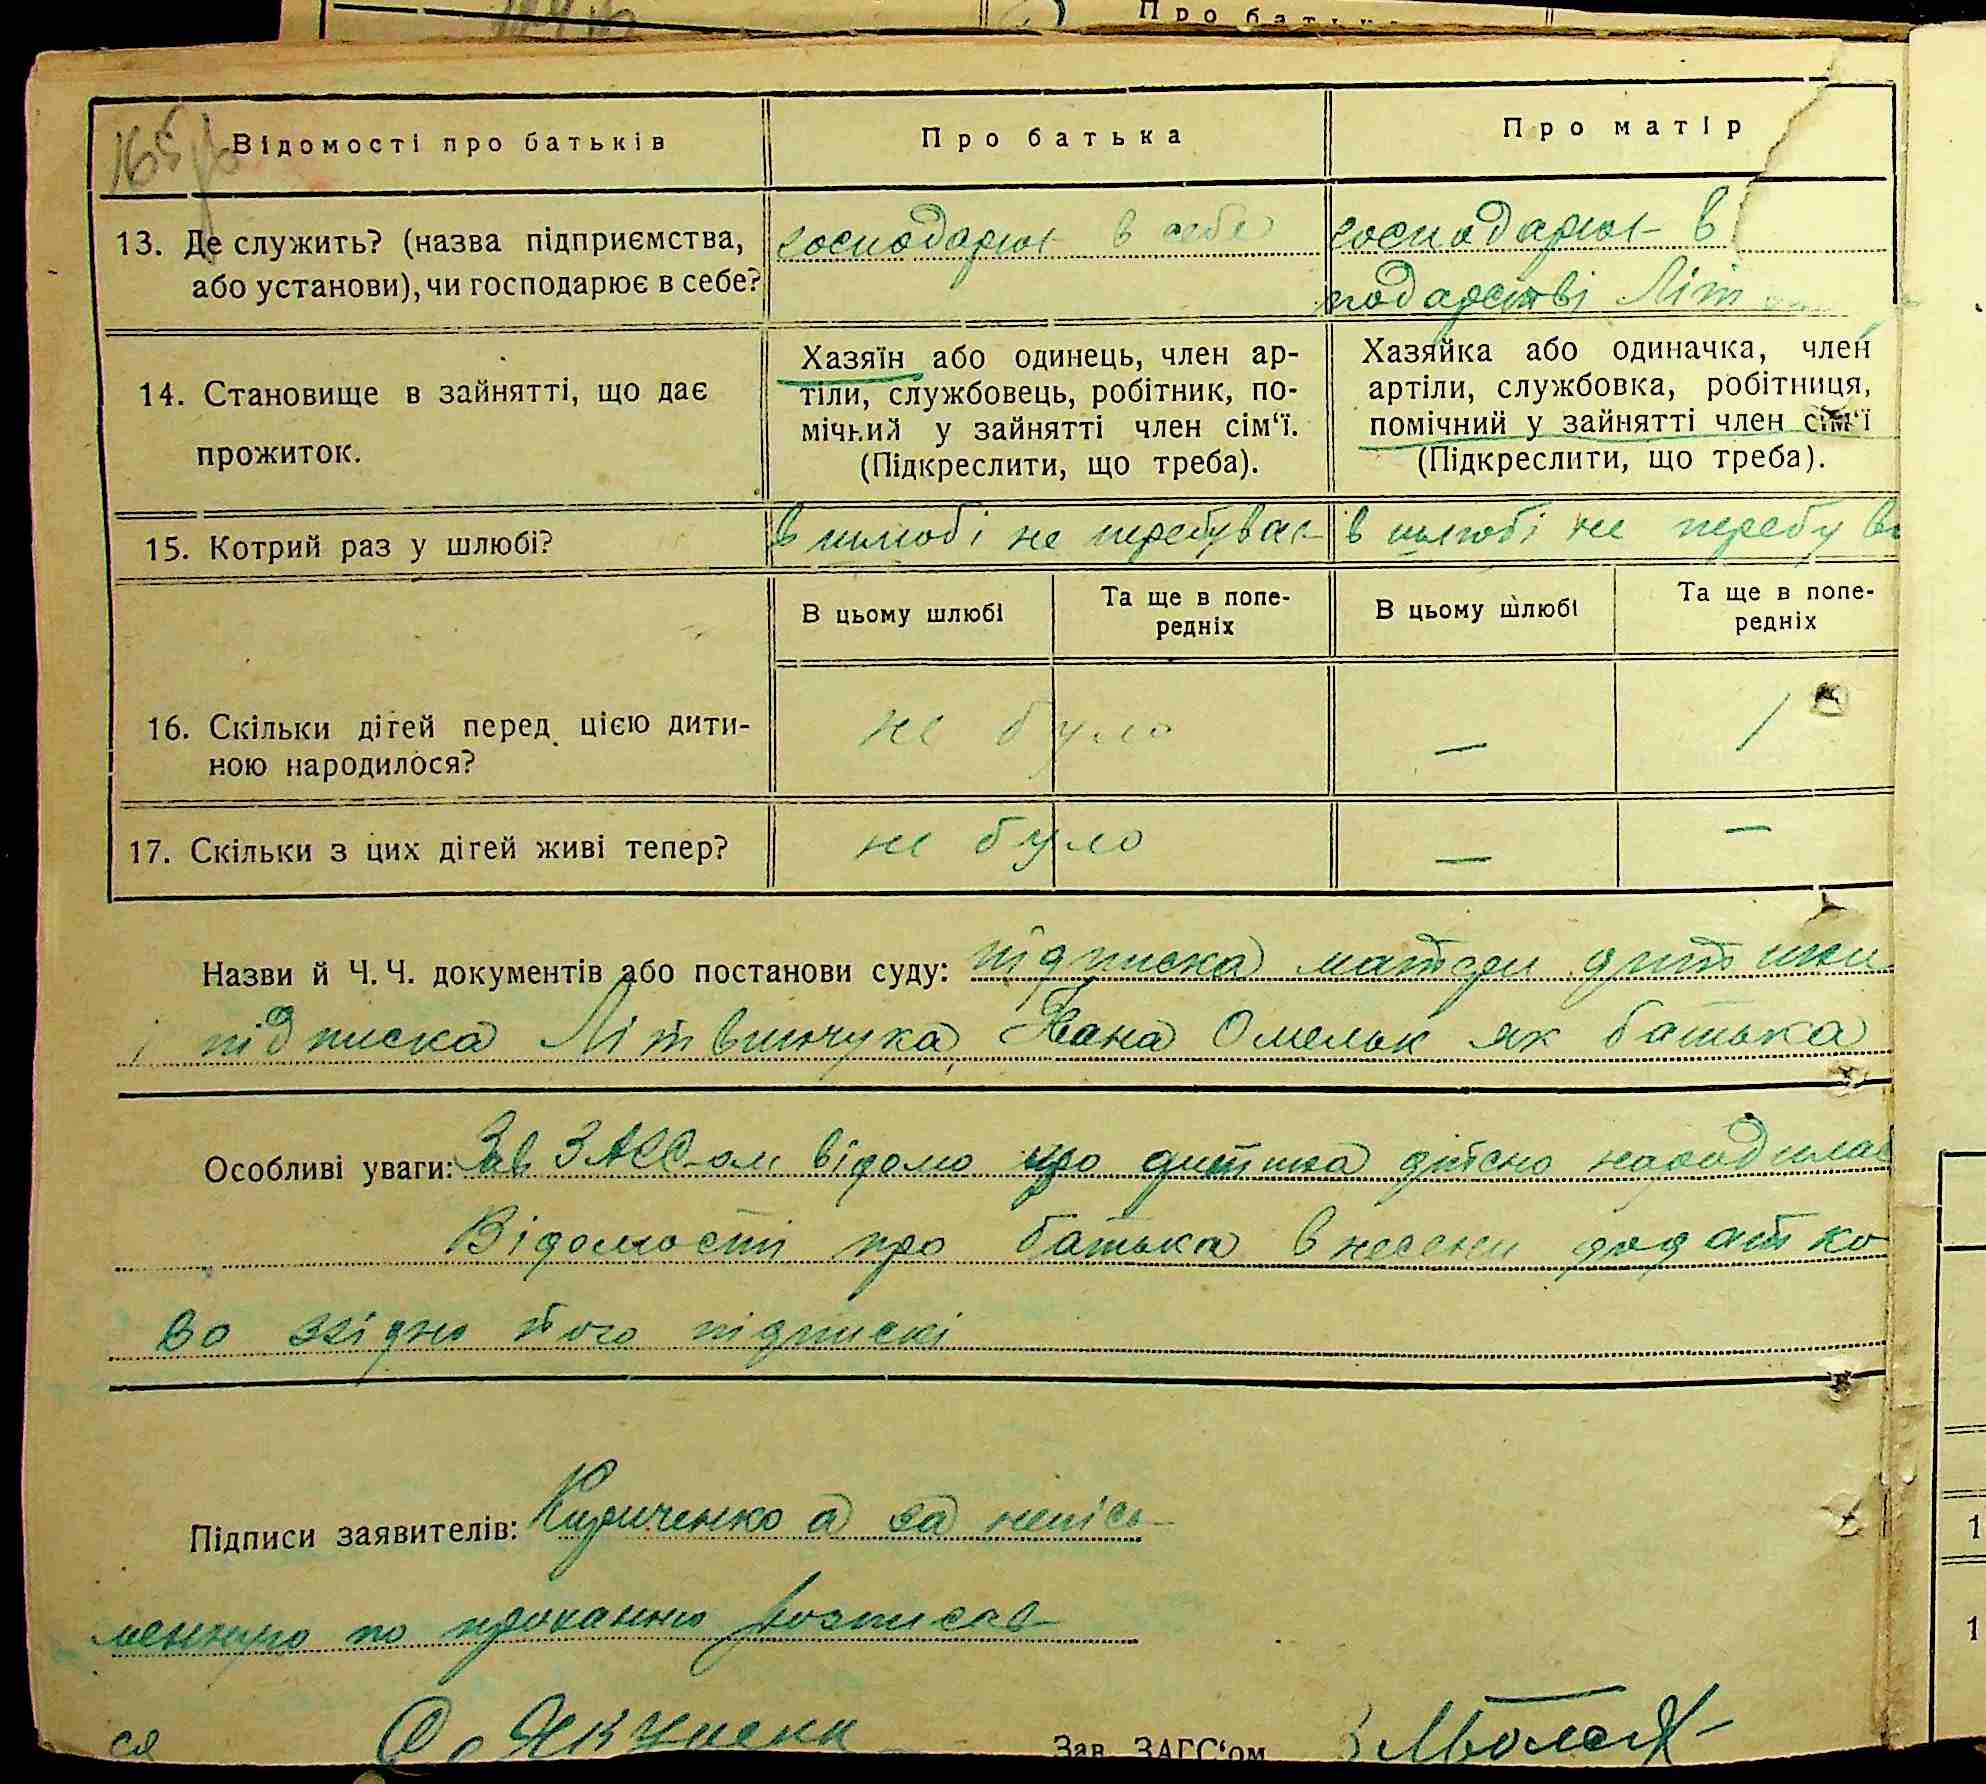 Про батька
165
Відомості про батьків
Про батька
Про матір
13. Де служить? (назва підприємства, або установи), чи господарює в себе?
господарює в себе
господарює в
подарстві Літ
14. Становище в зайнятті, що дає прожиток.
Хазяїн або одинець, член ар-
тіли, службовець, робітник, по-
мічний у зайнятті член сім‘ї.
(Підкреслити, що треба).
Хазяйка або одиначка, член
артіли, службовка, робітниця,
помічний у зайнятті член сім‘ї
(Підкреслити, що треба).
15. Котрий раз у шлюбі?
в шлюбі не перебуває
в шлюбі не перебува
В цьому шлюбі
Та ще в попе-
редніх
В цьому шлюбі
Та ще в попе-
редніх
16. Скільки дітей перед цією дити-
ною народилося?
не було
—
1
17. Скільки з цих дітей живі тепер?
не було
—
—
Назви й Ч. Ч. документів або постанови суду: підписка матери дитини
і підписка Літвинчука Івана Омельк як батька
Особливі уваги: Зав ЗАГС-ом відомо що дитина дійсно народилас
Відомості про батька внесени додатко
во згідно його підпискі
Підписи заявителів: Кириченко а за непісь
менную по проханню розписав
ся
Зав. ЗАГС‘ом
1
1